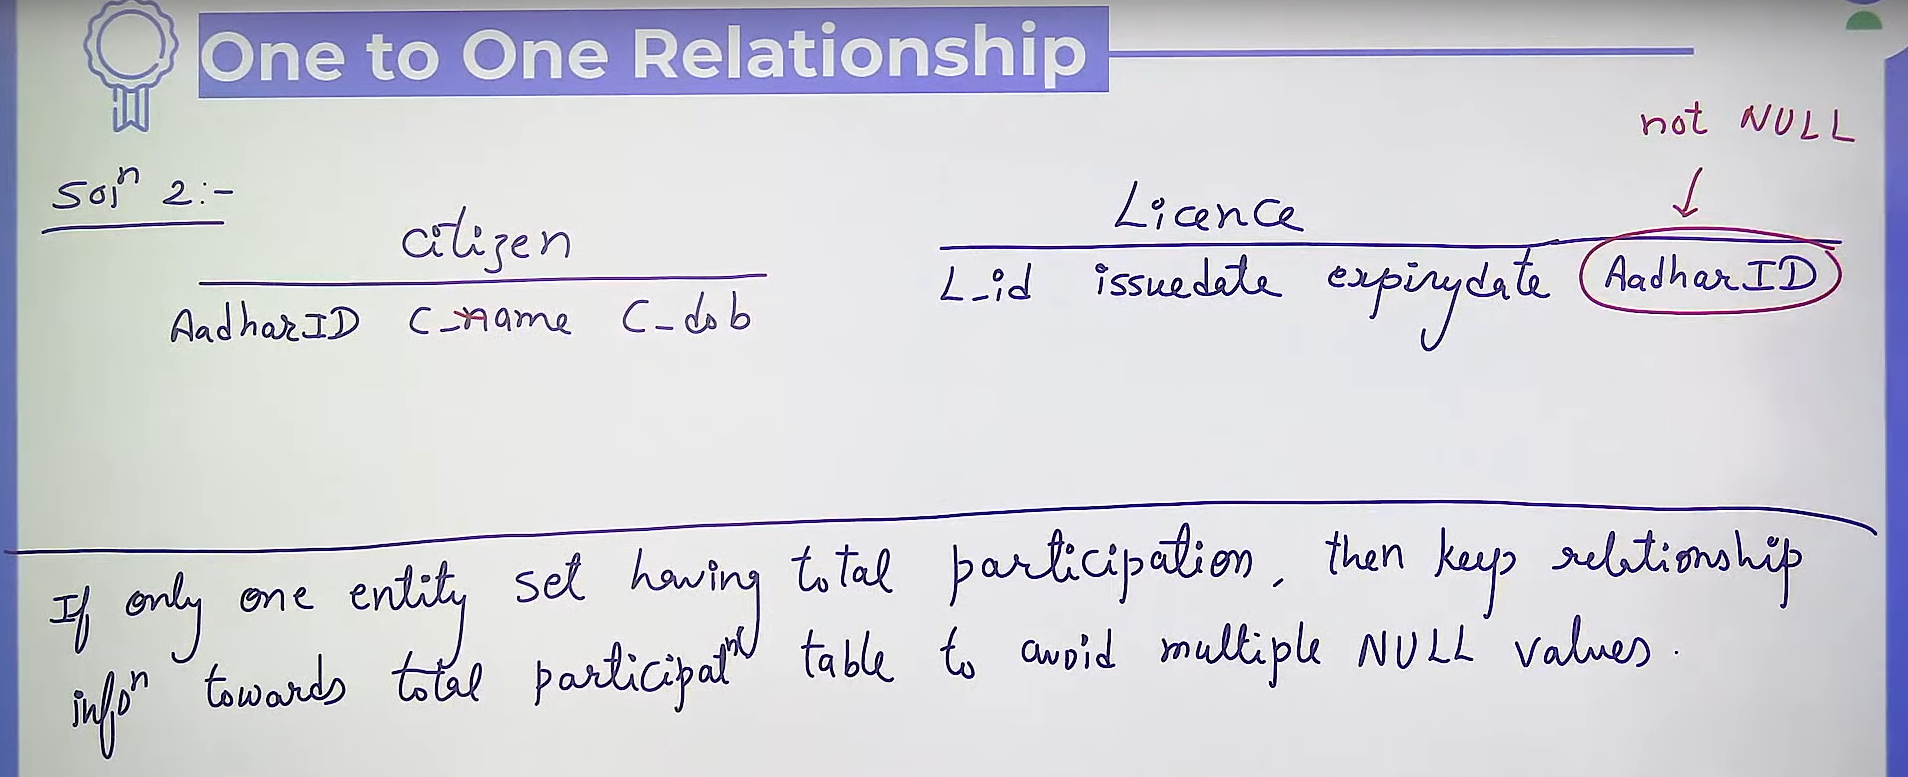 One to One Relationship
not NULL
Solⁿ 2:-
citizen
Licence
AadharID C_name C_dob
L_id issuedate expirydate AadharID
If only one entity set having total participation, then keep relationship
infoⁿ towards total participatⁿ table to avoid multiple NULL values.